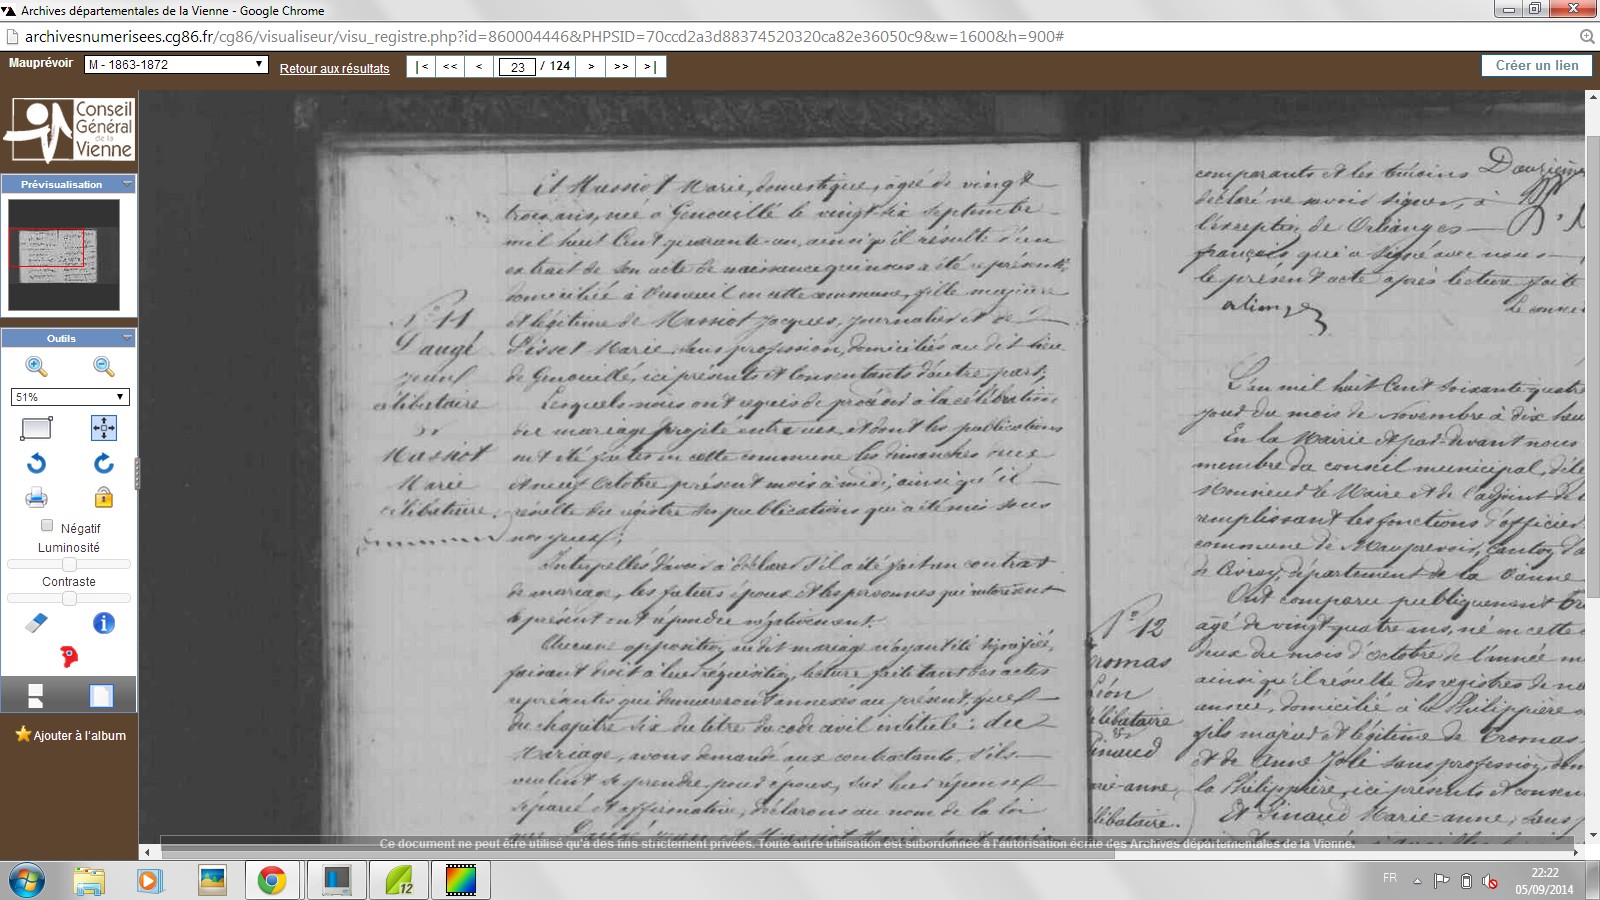 Archives départementales de la Vienne - Google Chrome
archivesnumerisees.cg86.fr/cg86/visualiseur/visu_registre.php?id=860004446&PHPSID=70ccd2a3d88374520320ca82e36050c9&w=1600&h=900#
Mauprévoir M - 1863-1872 Retour aux résultats |< << < 23 / 124 > >> >| Créer un lien
Conseil
Général
de la
Vienne
Prévisualisation
Outils
51%
Négatif
Luminosité
Contraste
Ajouter à l'album
Et Massiot Marie, domestique, âgée de vingt
trois ans, née à Genouillé le vingt-six septembre
mil huit cent quarante-un, ainsi qu'il résulte d'un
extrait de son acte de naissance qui nous a été représenté,
domiciliée à en cette commune, fille majeure
et légitime de Massiot Jacques, journalier et de
Marie, sans profession, domiciliés au dit lieu
de Genouillé, ici présents et consentants d'autre part;
Lesquels nous ont requis de procéder à la célébration
du mariage projeté entre eux, et dont les publications
ont été faites en cette commune les dimanches deux
et neuf Octobre présent mois à midi, ainsi qu'il
résulte du registre des publications qui a été mis sous
nos yeux;
Interpellés d'avoir à déclarer s'il a été fait un contrat
de mariage, les futurs époux et les personnes qui autorisent
le présent ont répondu négativement.
Aucune opposition audit mariage n'ayant été signifiée,
faisant droit à leur réquisition, lecture faite tant des actes
représentés qui demeureront annexés au présent, que
du chapitre six du titre du code civil intitulé: du
Mariage, avons demandé aux contractants, s'ils
veulent se prendre pour époux, sur leur réponse
séparée et affirmative, déclarons au nom de la loi
que Daugé Jean et Massiot Marie sont unis
No 11
Daugé
Jean
célibataire
et
Massiot
Marie
célibataire.
comparants et les témoins
déclaré ne savoir signer, à
l'exception de Orlanges
françois qui a signé avec nous
le présent acte après lecture faite
L'an mil huit cent soixante quatre
jour du mois de Novembre à dix heu
En la Mairie et par-devant nous
membre du conseil municipal, délé
Monsieur le Maire et de l'adjoint de
remplissant les fonctions d'officier
commune de Mauprévoir, canton d'a
de Civray, département de la Vienne
Ont comparu publiquement Tro
âgé de vingt-quatre ans, né en cette
deux du mois d'octobre de l'année m
ainsi qu'il résulte des registres de na
année, domicilié à la Philippière
fils majeur et légitime de Tromas
et de Anne Joli sans profession, dom
la Philippière, ici présents et consen
Et Pinaud Marie-anne, sans
No 12
Tromas
Léon
célibataire
et
Pinaud
rie-anne
libataire.
Ce document ne peut être utilisé qu'à des fins strictement privées. Toute autre utilisation est subordonnée à l'autorisation écrite des Archives départementales de la Vienne.
FR
22:22
05/09/2014